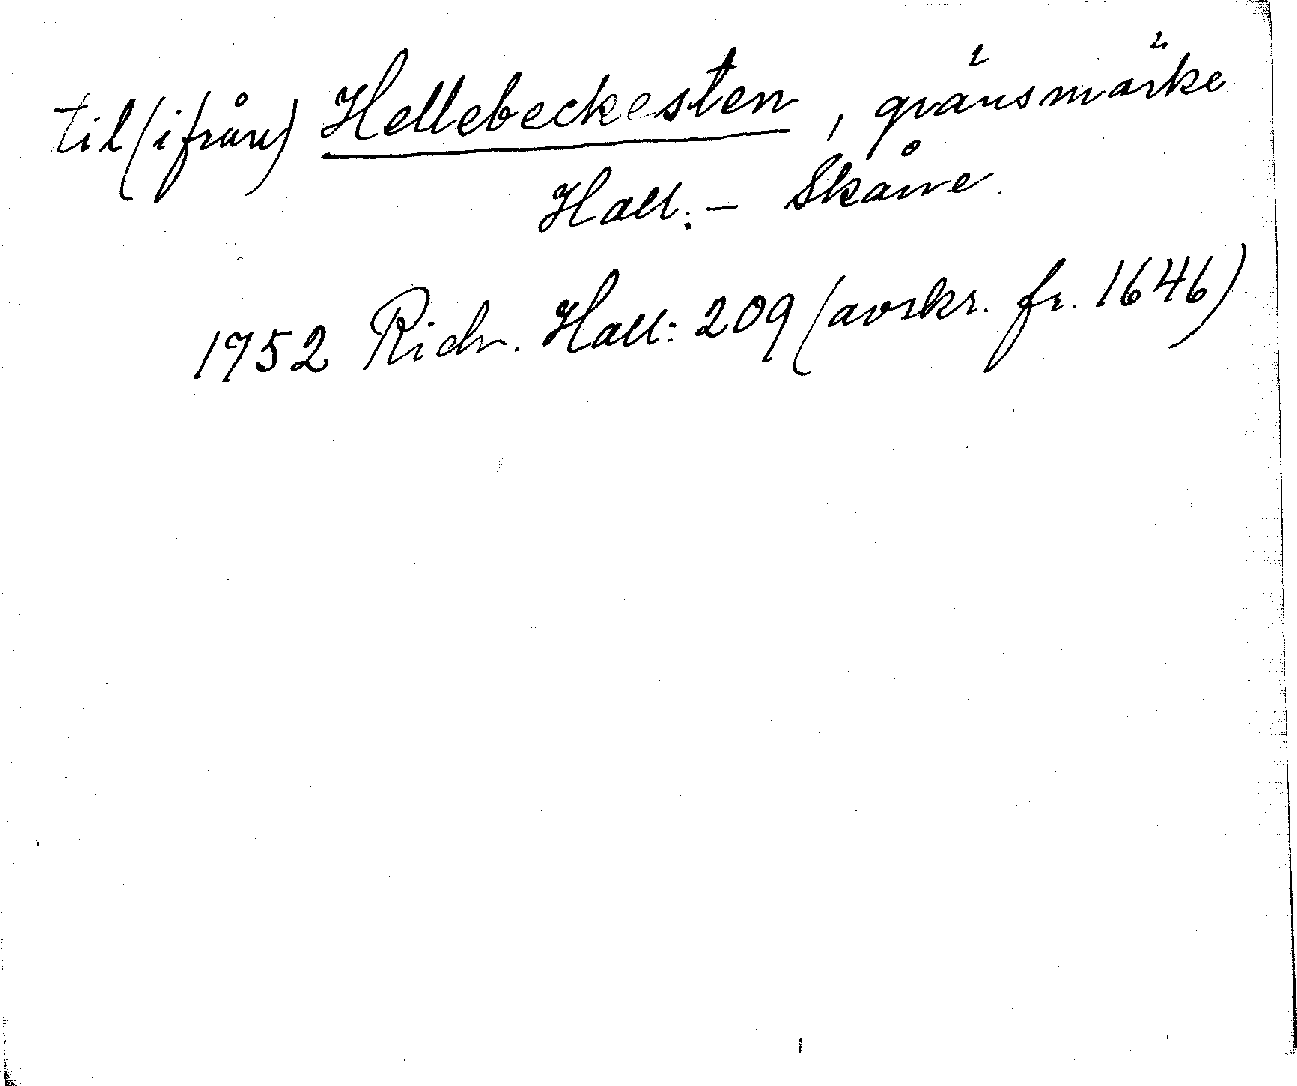 til (ifrån) Hellebeckesten, gränsmärke
Hall. - Skåne.
1752 Richr. Hall: 209 (avskr. fr. 1646)